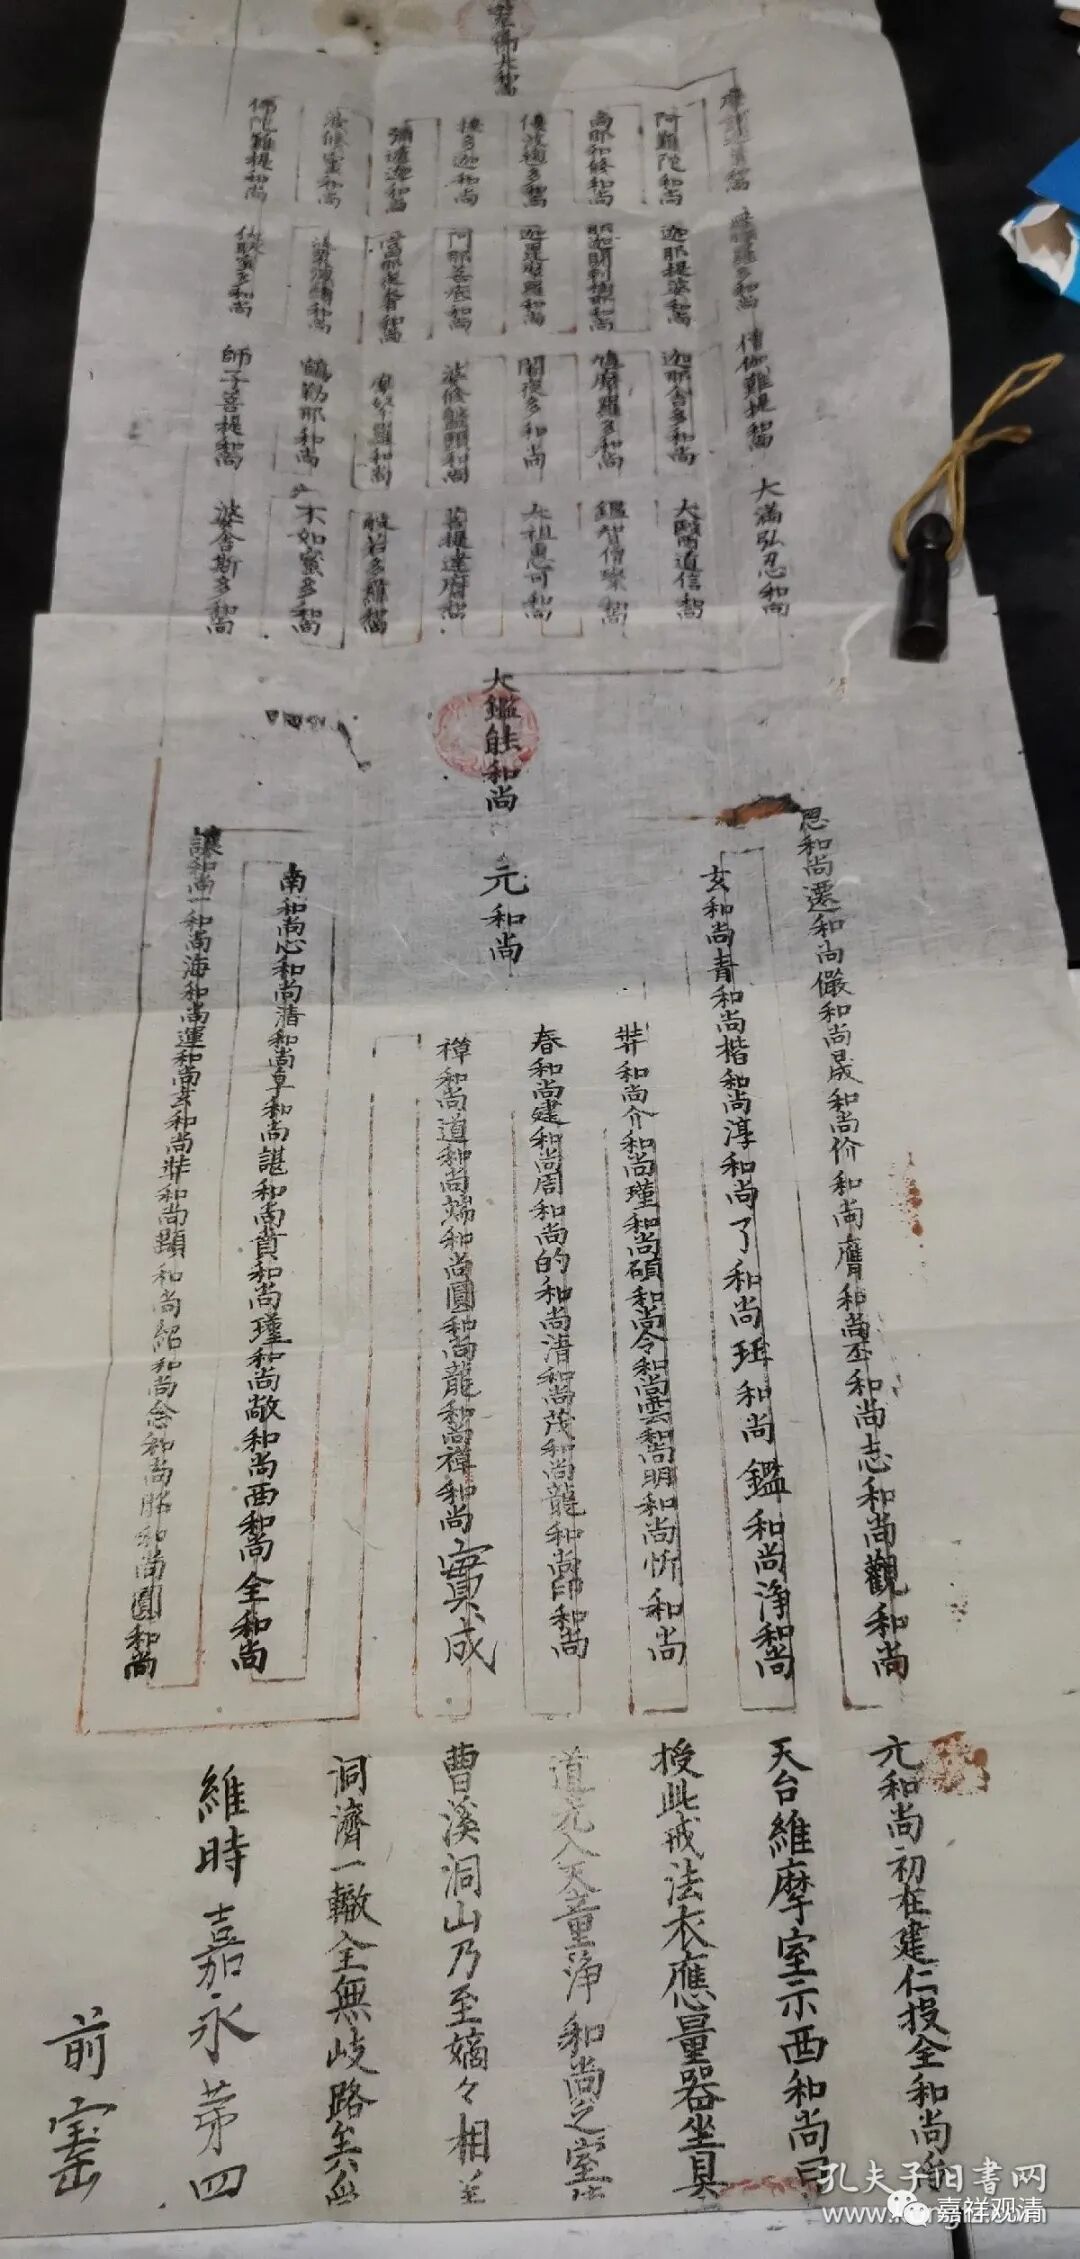 阿難陀和尚
商那和修和尚
優波毱多和尚
提多迦和尚
彌遮迦和尚
婆修蜜和尚
佛陀難提和尚
伽耶提婆和尚
僧伽難提和尚
迦耶舍多和尚
鳩摩羅多和尚
闍夜多和尚
婆修盤頭和尚
摩拏羅和尚
鶴勒那和尚
師子菩提和尚
婆舍斯多和尚
不如蜜多和尚
般若多羅和尚
菩提達磨和尚
大祖惠可和尚
鑑智僧璨和尚
大醫道信和尚
大滿弘忍和尚
大鑑能和尚
元和尚
思和尚遷和尚儼和尚晟和尚价和尚膺和尚丕和尚志和尚觀和尚
玄和尚青和尚楷和尚淳和尚了和尚珏和尚鑑和尚淨和尚
弉和尚介和尚瑾和尚碩和尚令和尚雲和尚明和尚忻和尚
春和尚建和尚周和尚的和尚清和尚茂和尚龍和尚印和尚
禪和尚道和尚端和尚圓和尚龍和尚禪和尚實成
南和尚心和尚清和尚卓和尚諶和尚賁和尚瑾和尚敞和尚西和尚全和尚
讓和尚一和尚海和尚運和尚玄和尚弉和尚顯和尚紹和尚念和尚昭和尚圓和尚
元和尚初在建仁投全和尚
天台維摩室示西和尚曰
授此戒法衣應量器坐具
道元入天童淨和尚之室
曹溪洞山乃至嫡々相
洞濟一轍全無岐路矣
維時嘉永第四
前
孔夫子旧书网
嘉祥观清